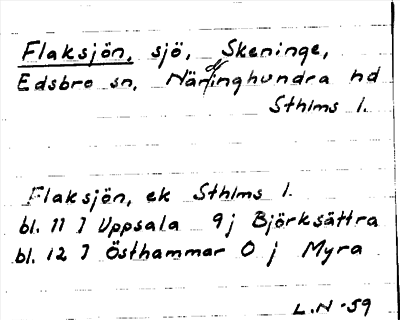 Flaksjön, sjö, Skeninge,
Edsbro sn, Närdinghundra hd
Sthlms l.
Flaksjön, ek Sthlms l.
bl. 11 I Uppsala 9j Björksättra
bl. 12 I Östhammar 0 j Myra
L.N -59